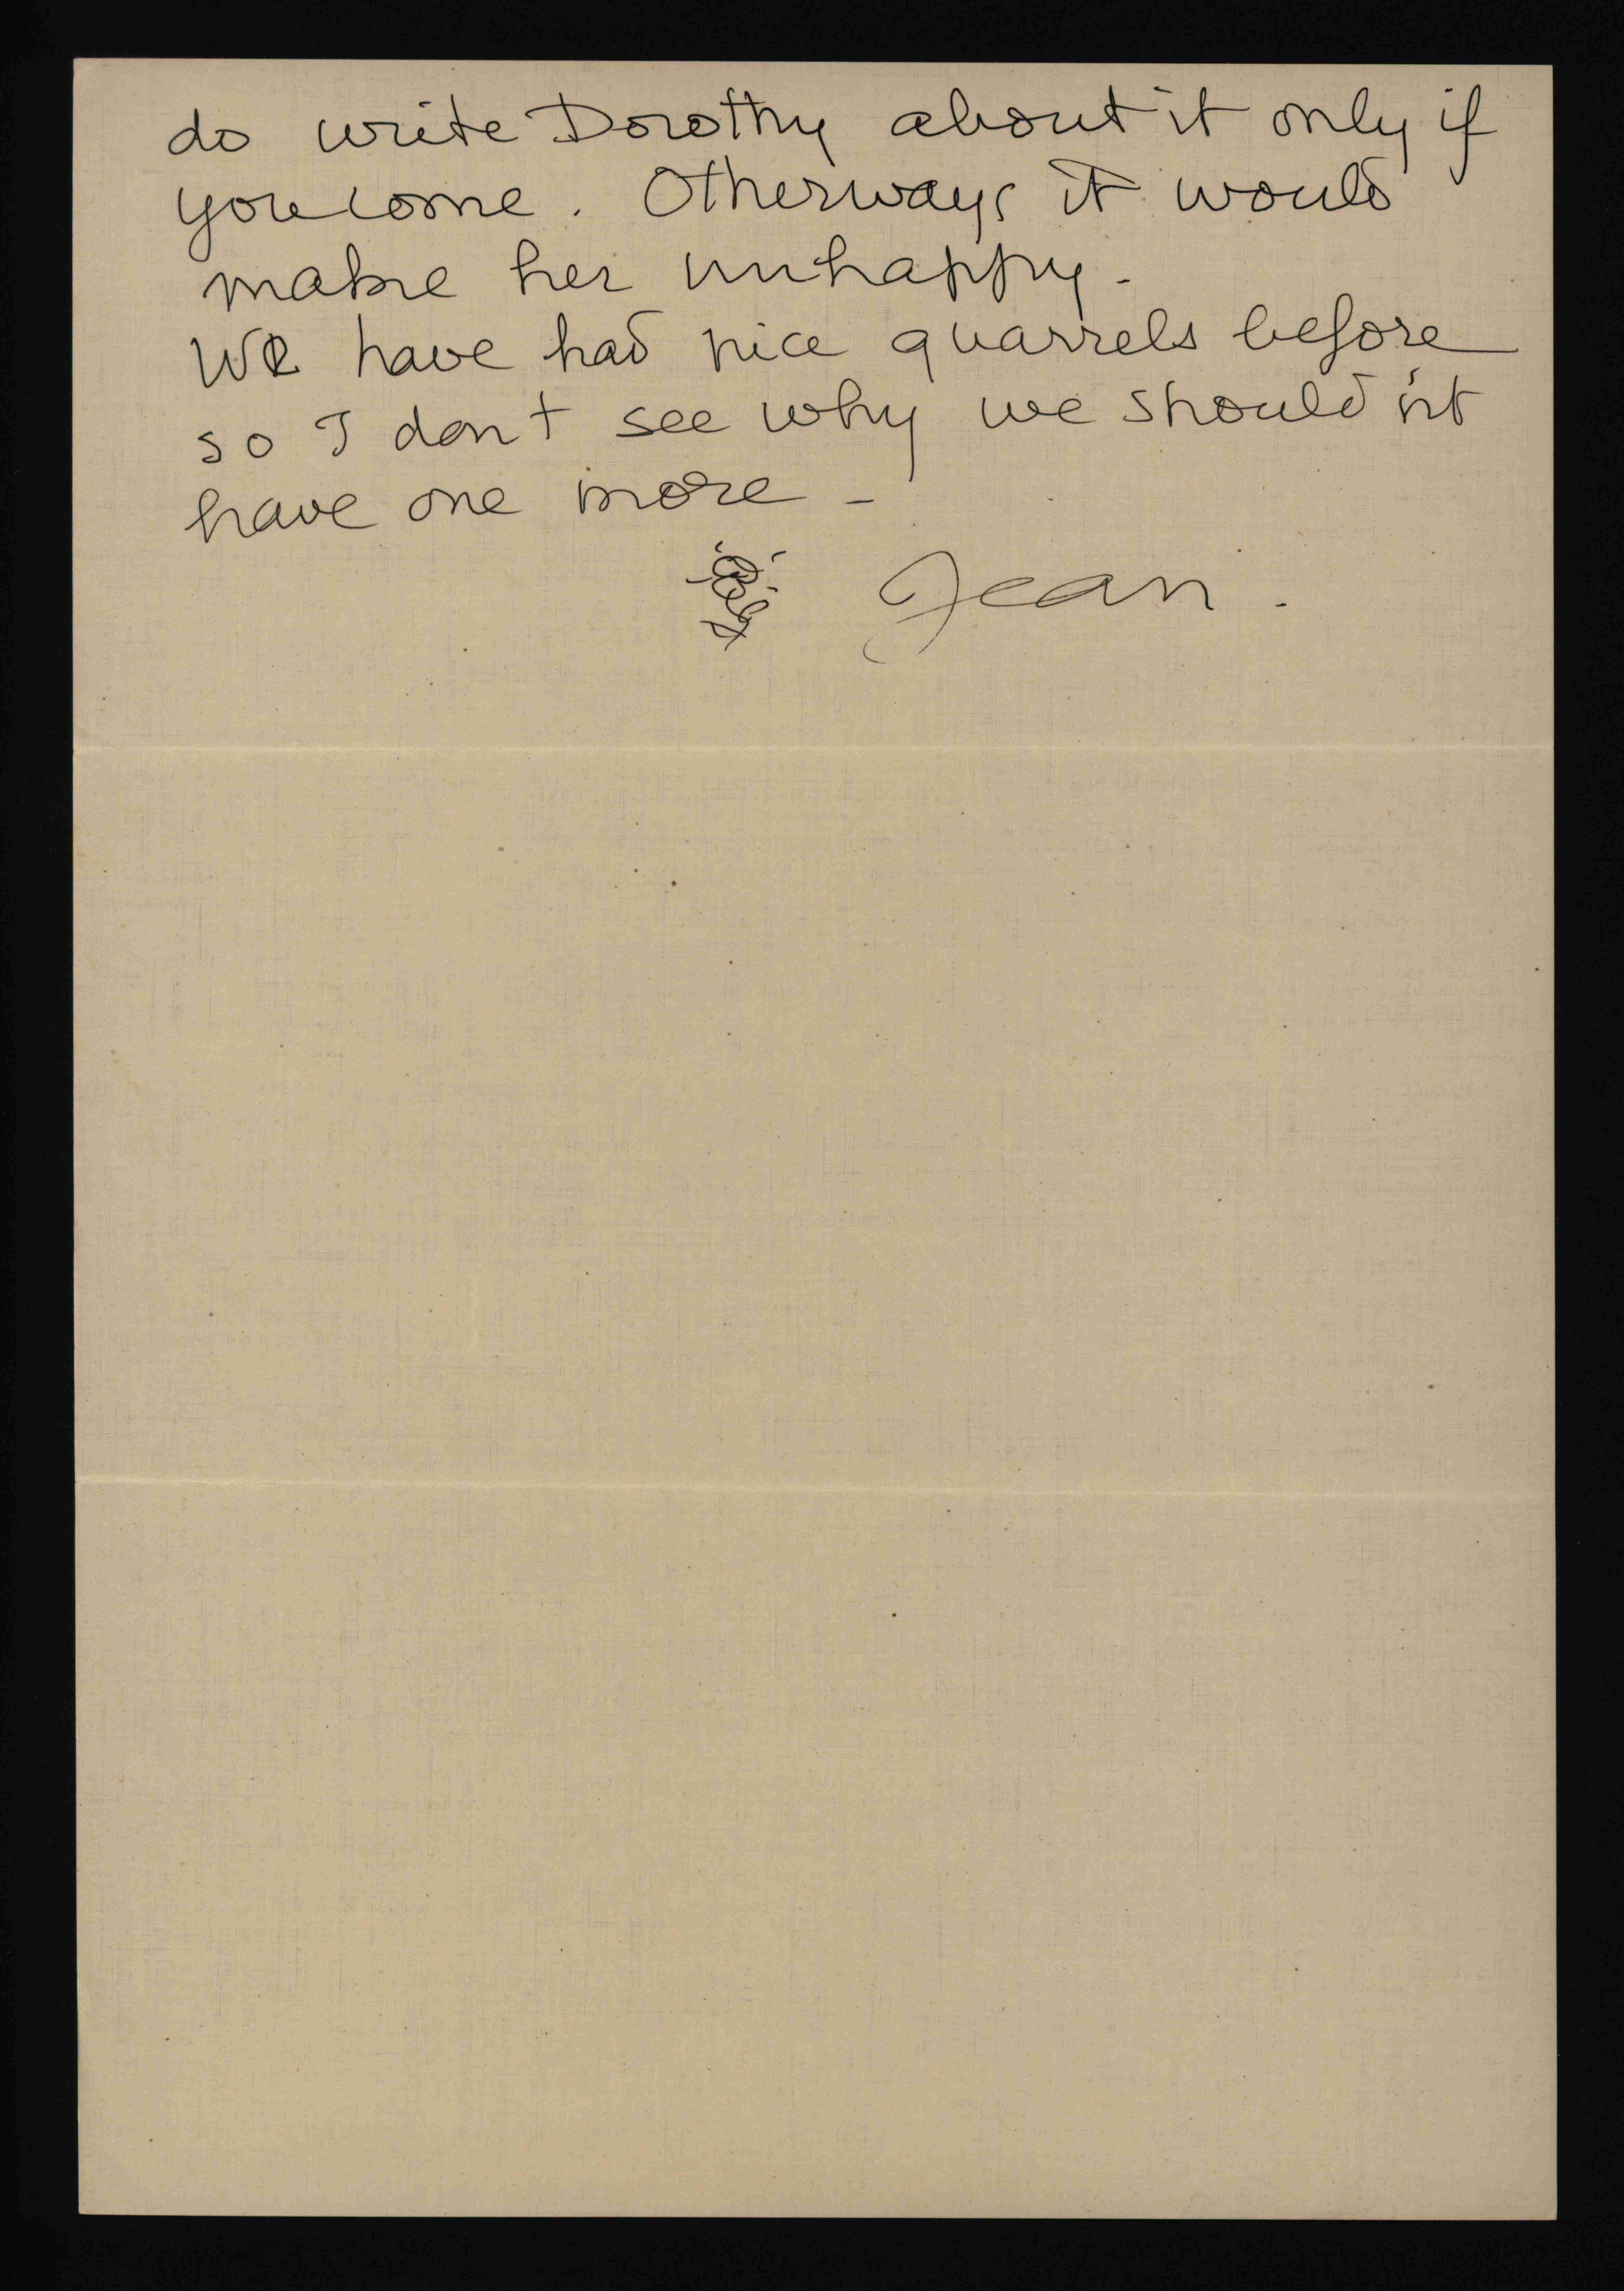 do write Dorothy about it only if
you come. Otherways it would
make her unhappy.
We have had nice quarrels before
so I don't see why we should n't
have one more –
Jean.